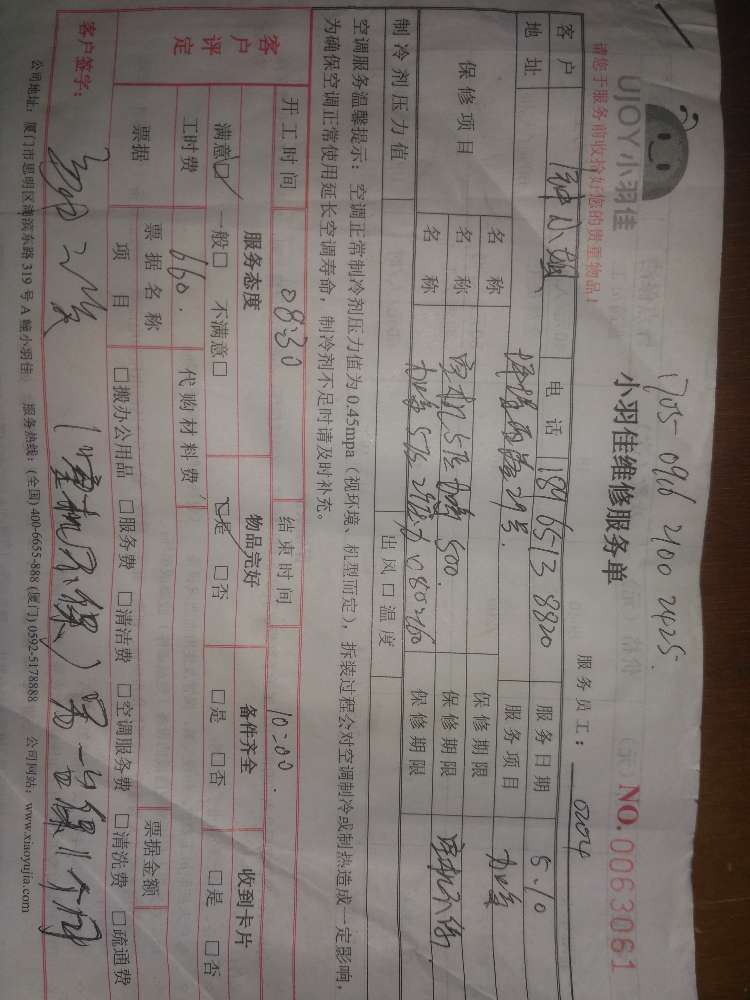 1705-0966 2100 2425.
UJOY小羽佳
小羽佳维修服务单
(天) NO. 0063061
请您于服务前收拾好您的贵重物品!
服务员工: 0204
客户 电话 189 6513 8820 服务日期 5.10
地址 29号. 服务项目 加
保修项目 名称 保修期限
名称 500. 保修期限
名称 保修期限
制冷剂压力值 出风口温度
空调服务温馨提示: 空调正常制冷剂压力值为 0.45mpa(视环境、机型而定),拆装过程会对空调制冷或制热造成一定影响,
为确保空调正常使用延长空调寿命,制冷剂不足时请及时补充。
开工时间 08:30 结束时间 10:00.
客户评定 服务态度 物品完好 备件齐全 收到卡片
满意☑ 一般□ 不满意□ ☑是 □否 □是 □否 □是 □否
工时费 660. 代购材料费
票据 票据名称 票据金额
项目 □搬办公用品 □服务费 □清洁费 □空调服务费 □清洗费 □疏通费
客户签字: 保1个月
公司地址: 厦门市思明区洪莲东路 319 号 A 幢小羽佳 服务热线: (全国) 400-6655-888 (厦门) 0592-5178888 公司网站: www.xiaoyujia.com